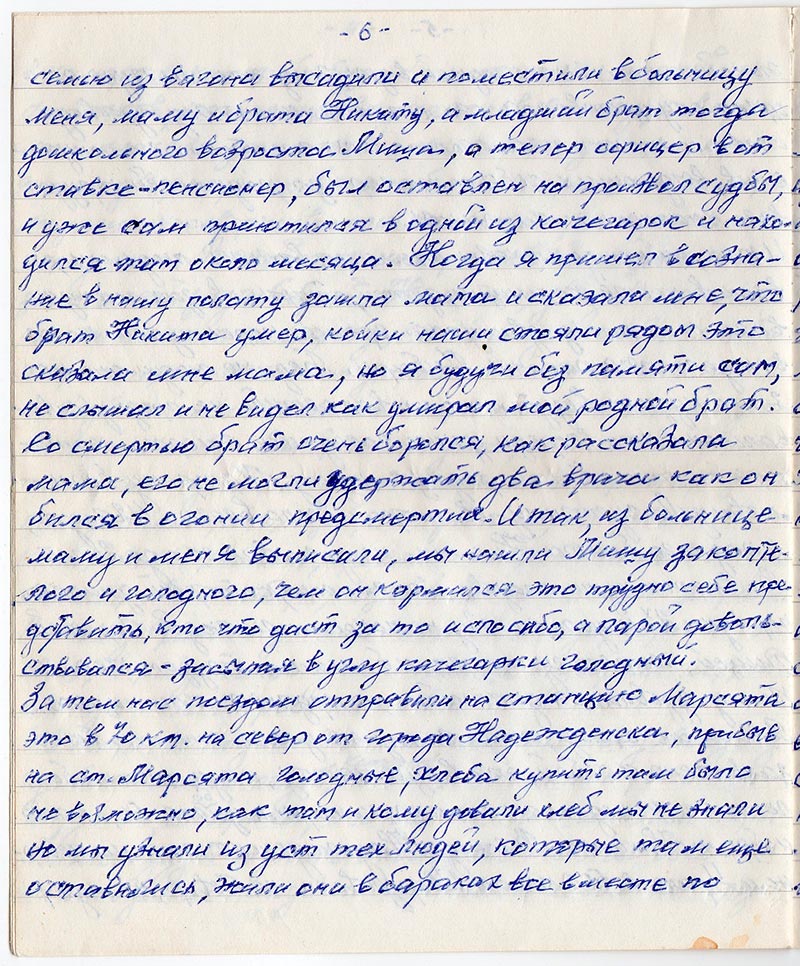 -6-
семью из вагона высадили и поместили в больницу
меня, маму и брата Никиту, а младший брат тогда
дошкольного возроста Миша, а тепер офицер в от-
ставке-пенсионер, был оставлен на произвол судбы,
и уже сам приютился в одной из качегарок и нахо-
дился там около месяца. Когда я пришел в созна-
ние в нашу полату зашла мата и сказали мне, что
брат Никита умер, койки наши стояли рядом это
сказала мне мама, но я будучи без памяти сам,
не слышал и не видел как умирал мой родной брат.
Со смертью брат очень боролся, как рассказала
мама, его не могли удержать два врича как он
бился в огонии предсмертия. И так, из больнице
маму и меня выписили, мы нашли Мишу закопте-
лого и голодного, чем он кормился это трудно себе пре-
дставить, кто что даст за то и спосибо, а парой доволь-
ствовался - засыпая в углу качегарки голодный.
Затем нас поездом отправили на станцию Марсята
это в 70 км. на север от города Надежденска, прибыв
на ст. Марсята голодные, хлеба купить там было
не возможно, как там и кому довали хлеб мы не знали
но мы узнали из уст тех людей, которые там еще
оставались, жили они в бараках все вместе по